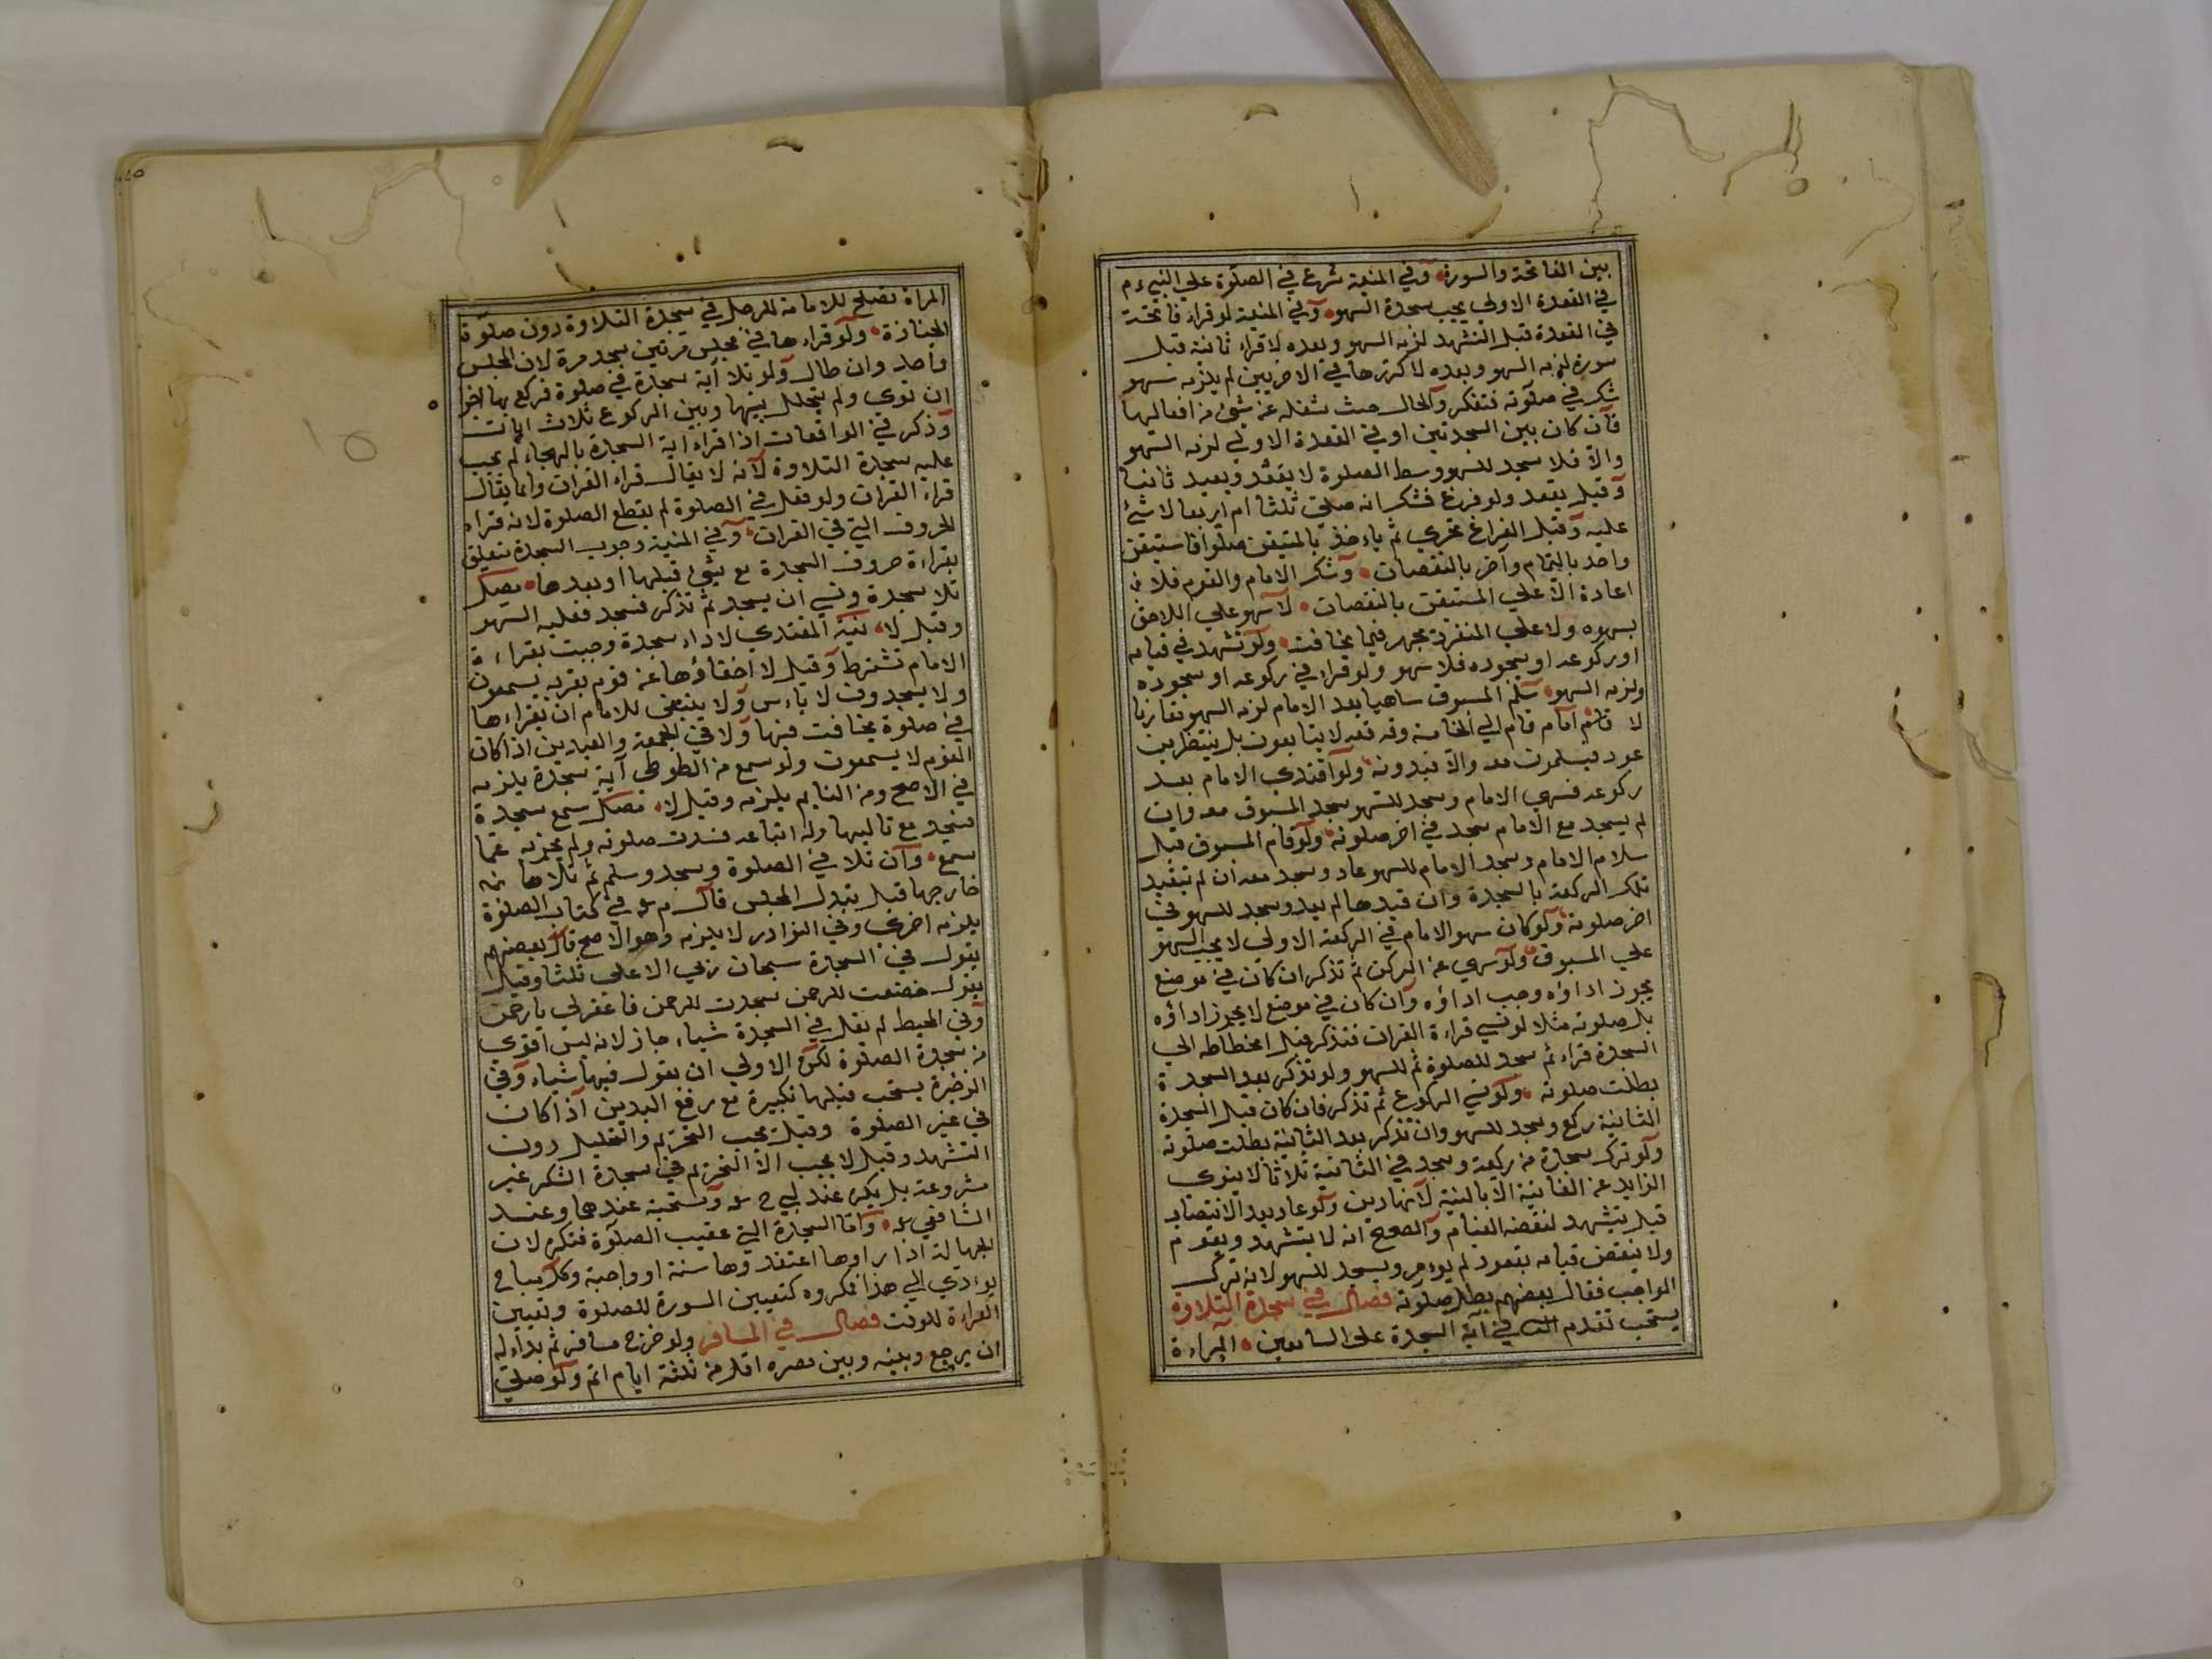 بين الفاتحة والسورة وفي المنية شرع في الصلوة علي النبي ءم
في القعدة الاولي يجب سجدة السهو وفي المنية لو قراء فاتحة
في القعدة قبل التشهد لزمه السهو وبعده لا قراء ثانية قبل
سورة لزمه السهو وبعده لا كررها في الاخريين لم يلزمه سهو
شك في صلوته فتفكر وآطال حيث شغله عن شيئ من افعالها
فآن كان بين السجدتين او في القعدة الاولي لزمه السهو
والآ فلا سجد للسهو وسط الصلوة لا يعتد ويعيد ثانيا
وقيل يعتد ولو فرغ فشك انه صلي ثلثا ام اربعا لا شئ
عليه وقبل الفراغ تحري ثم ياءخذ بالمتيقن صلوا فاستيقن
واحد بالتمام وآخر بالنقصان وشك الامام والقوم فلا
اعادة الآ علي المستيقن بالنقصان لآ سهو علي اللاحق
بسهوه ولا علي المنفرد بجهر فيما يخافت ولو تشهد في قيامه
او ركوعه او سجوده فلا سهو ولو قراء في ركوعه او سجوده
لزمه السهو سلم المسبوق ساهيا بعد الامام لزمه السهو مقارنا
لا قلتم امام قام الي الخامسة وقد قعد لا يتابعون بل ينتظرين
عود فيسلمون معه والآ تبدونه ولو اقتدي الامام بعد
ركوعه فسهي الامام وسجد للسهو سجد المسبوق معه وان
لم يسجد مع الامام سجد في اخر صلوته ولو قام المسبوق قبل
سلام الامام وسجد الامام للسهو عاد وسجد معه ان لم تيقيد
تلك الركعة بالسجدة وان قيدها لم يعد وسجد للسهو في
اخر صلوته ولو كان سهو الامام في الركعة الاولي لا يجب السهو
علي المسبوق ولو سهي عن الركن ثم تذكر ان كان في موضع
يجوز اداؤه وجب اداؤه وآن كان في موضع لا يجوز اداؤه
بل صلوته مثلا لو نسي قراءة القران فتذكر قبل انحطاطه الي
السجدة قراء ثم سجد للصلوة ثم للسهو ولو تذكر بعد السجدة
بطلت صلوته ولو نسي الركوع ثم تذكر فان كان قبل السجدة
الثانية ركع وسجد للسهو وان تذكر بعد الثانية بطلت صلوته
ولو ترك سجدة من ركعة وسجد في الثانية ثلاثا لا ينوي
الزايد عن الفانية الآ بالنية لآنها دين ولو عاد بعد الانتصاب
قيل يتشهد لنقضه القيام والصحيح انه لا يتشهد ويقوم
ولا ينقض قيامه بقعود لم يوءمر ويسجد للسهو لانه ترك
الواجب فقال بعضهم بطل صلوته فصل في سجدة التلاوة
يستحب تقدم التالي في آية السجدة علي السامعين المراءة
المراة تصلح للامامة للرجل في سجدة التلاوة دون صلوة
الجنازة ولو قراءها في مجلس مرتين سجد مرة لان المجلس
واحد وان طال ولو تلا آية سجدة في صلوة فركع بها اجزا
ان نوي ولم يتخلل بينها وبين الركوع ثلاث ايات
وذكر في الواقعات اذا قراء اية السجدة بالهجاء لم يجب
عليه سجدة التلاوة لآنه لا يقال قراء القران وانما يقال
قراء القران ولو فعل في الصلوة لم يقطع الصلوة لانه قراء
الحروف التي في القران وفي المنية وجوب السجدة يتعلق
بقراءة حروف السجدة مع شيئ قبلها او بعدها فصل
تلا سجدة ونسي ان يسجد ثم تذكر فسجد فعليه السهو
وقيل لا نية المقتدي لاداء سجدة وجبت بقراءة
الامام تشترط وقيل لا اخفاؤها عن قوم بقربه يسمعون
ولا يسجدون لا باءس ولا ينبغي للامام ان يقراءها
في صلوة يخافت فيها ولا في الجمعة والعيدين اذا كان
القوم لا يسمعون ولو سمع من الطوطي آية سجدة يلزمه
في الاصح ومن النايم يلزمه وقيل لا فصل سمع سجدة
فسجد مع تاليها وله اتباعه فسدت صلوته ولم يجزه عما
سمع وآن تلا في الصلوة وسجد وسلم ثم تلاها في
خارجها قبل تبدل المجلس قال م رح في كتاب الصلوة
يلزمه اخري وفي النوادر لا يلزمه وهو الاصح قال بعضهم
يقول في السجدة سبحان ربي الاعلي ثلثا وقيل
يقول خضعت للرحمن سجدت للرحمن فاغفرلي يا رحمن
وفي المحيط لم يقل في السجدة شياء جاز لانه ليس اقوي
من سجدة الصلوة لكن الاولي ان يقول فيها شياء وفي
الذخيرة يستحب قبلها تكبيرة مع رفع اليدين اذا كان
في غير الصلوة وقيل يجب التحريم والتحليل دون
التشهد وقيل لا يجب الآ التحريم في سجدة الشكر غير
مشروعة بل يكره عند ابي ح رح ومستحبة عندهما وعند
الشافعي رح وآما السجدة التي عقيب الصلوة فتكره لان
الجهالة اذا راوها اعتقدوها سنة او واجبة وكل مباح
يوادي الي هذا فمكروه كتعيين السورة للصلوة وتعيين
القراءة للوقت فصل في المسافر ولو خرج مسافر ثم بداء له
ان يرجع وبينه وبين مصره اقل من ثلثة ايام اتم ولو صلي